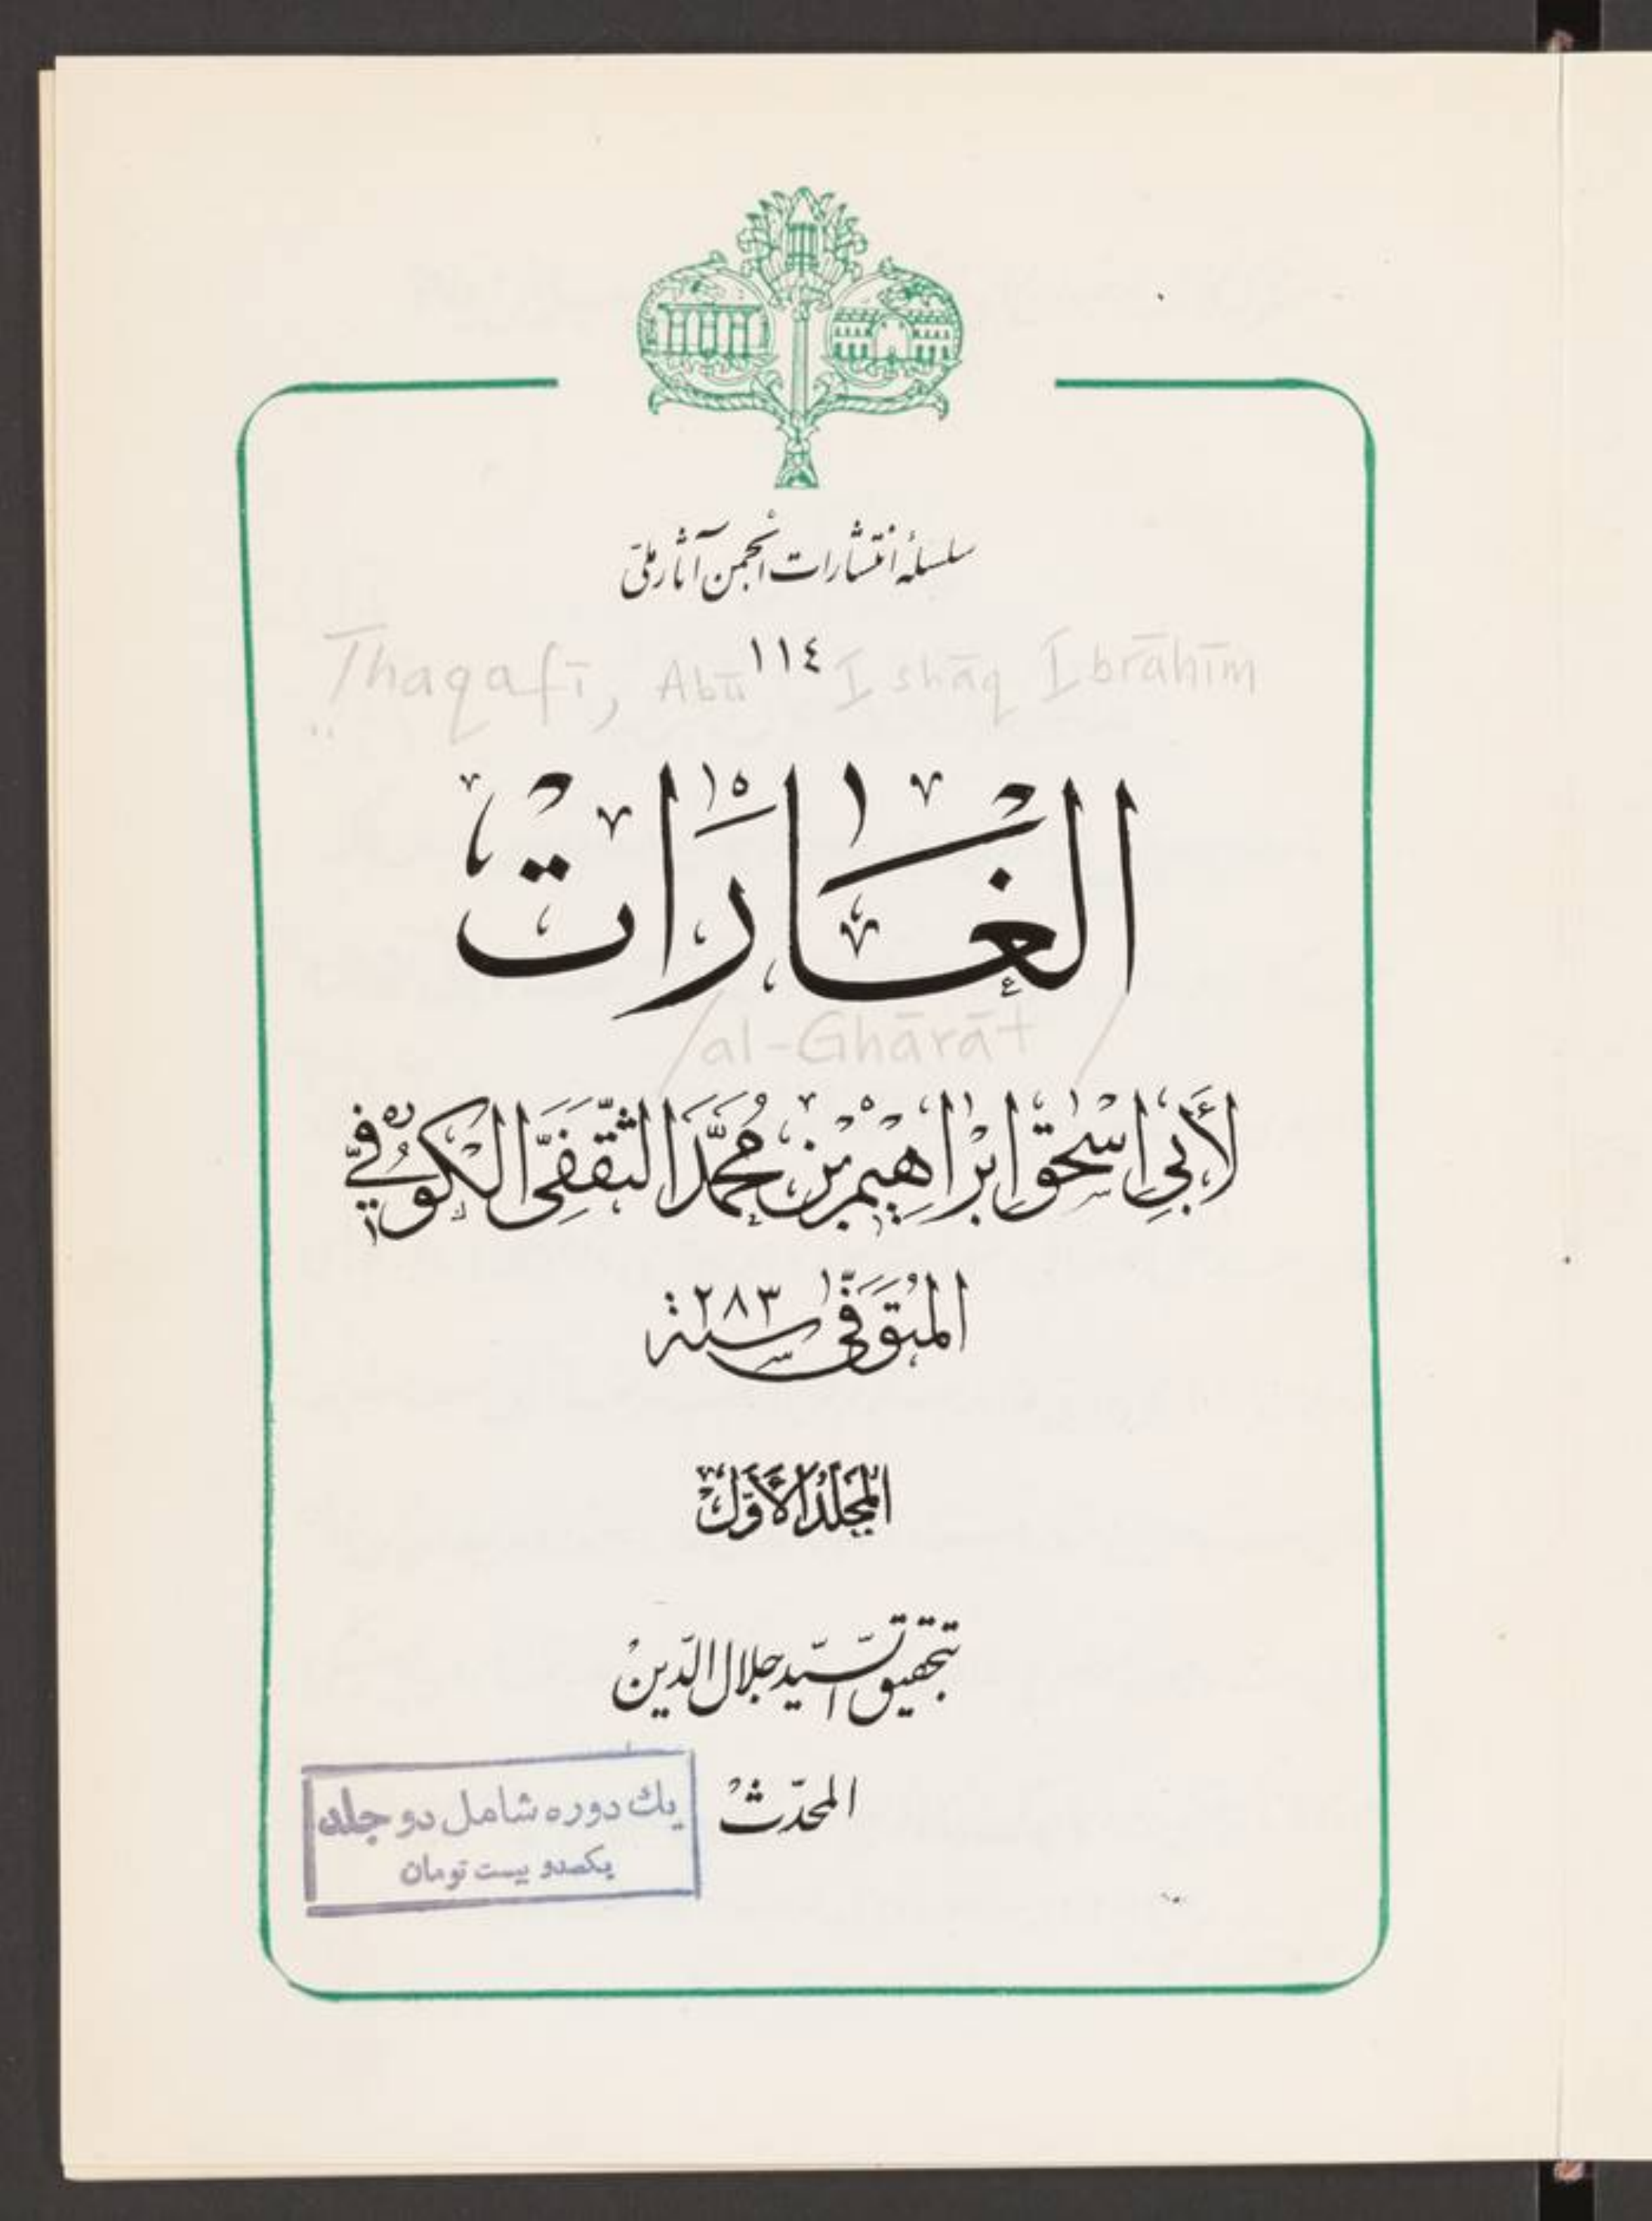 سلسلهٔ انتشارات انجمن آثار ملّی
١١٤
Thaqafī, Abū Isḥāq Ibrāhīm
الغَارَات
/al-Ghārāt/
لأَبِي اسْحٰق ابْرَاهِيم بْن مُحَمَّد الثَّقَفِيّ الكُوفِيّ
المُتَوَفّٰى سنة ٢٨٣
المجَلّد الأَوَّل
بتحقیق السّیّد جلال الدّین
المحدّث
يك دوره شامل دو جلد
یکصدو بیست تومان